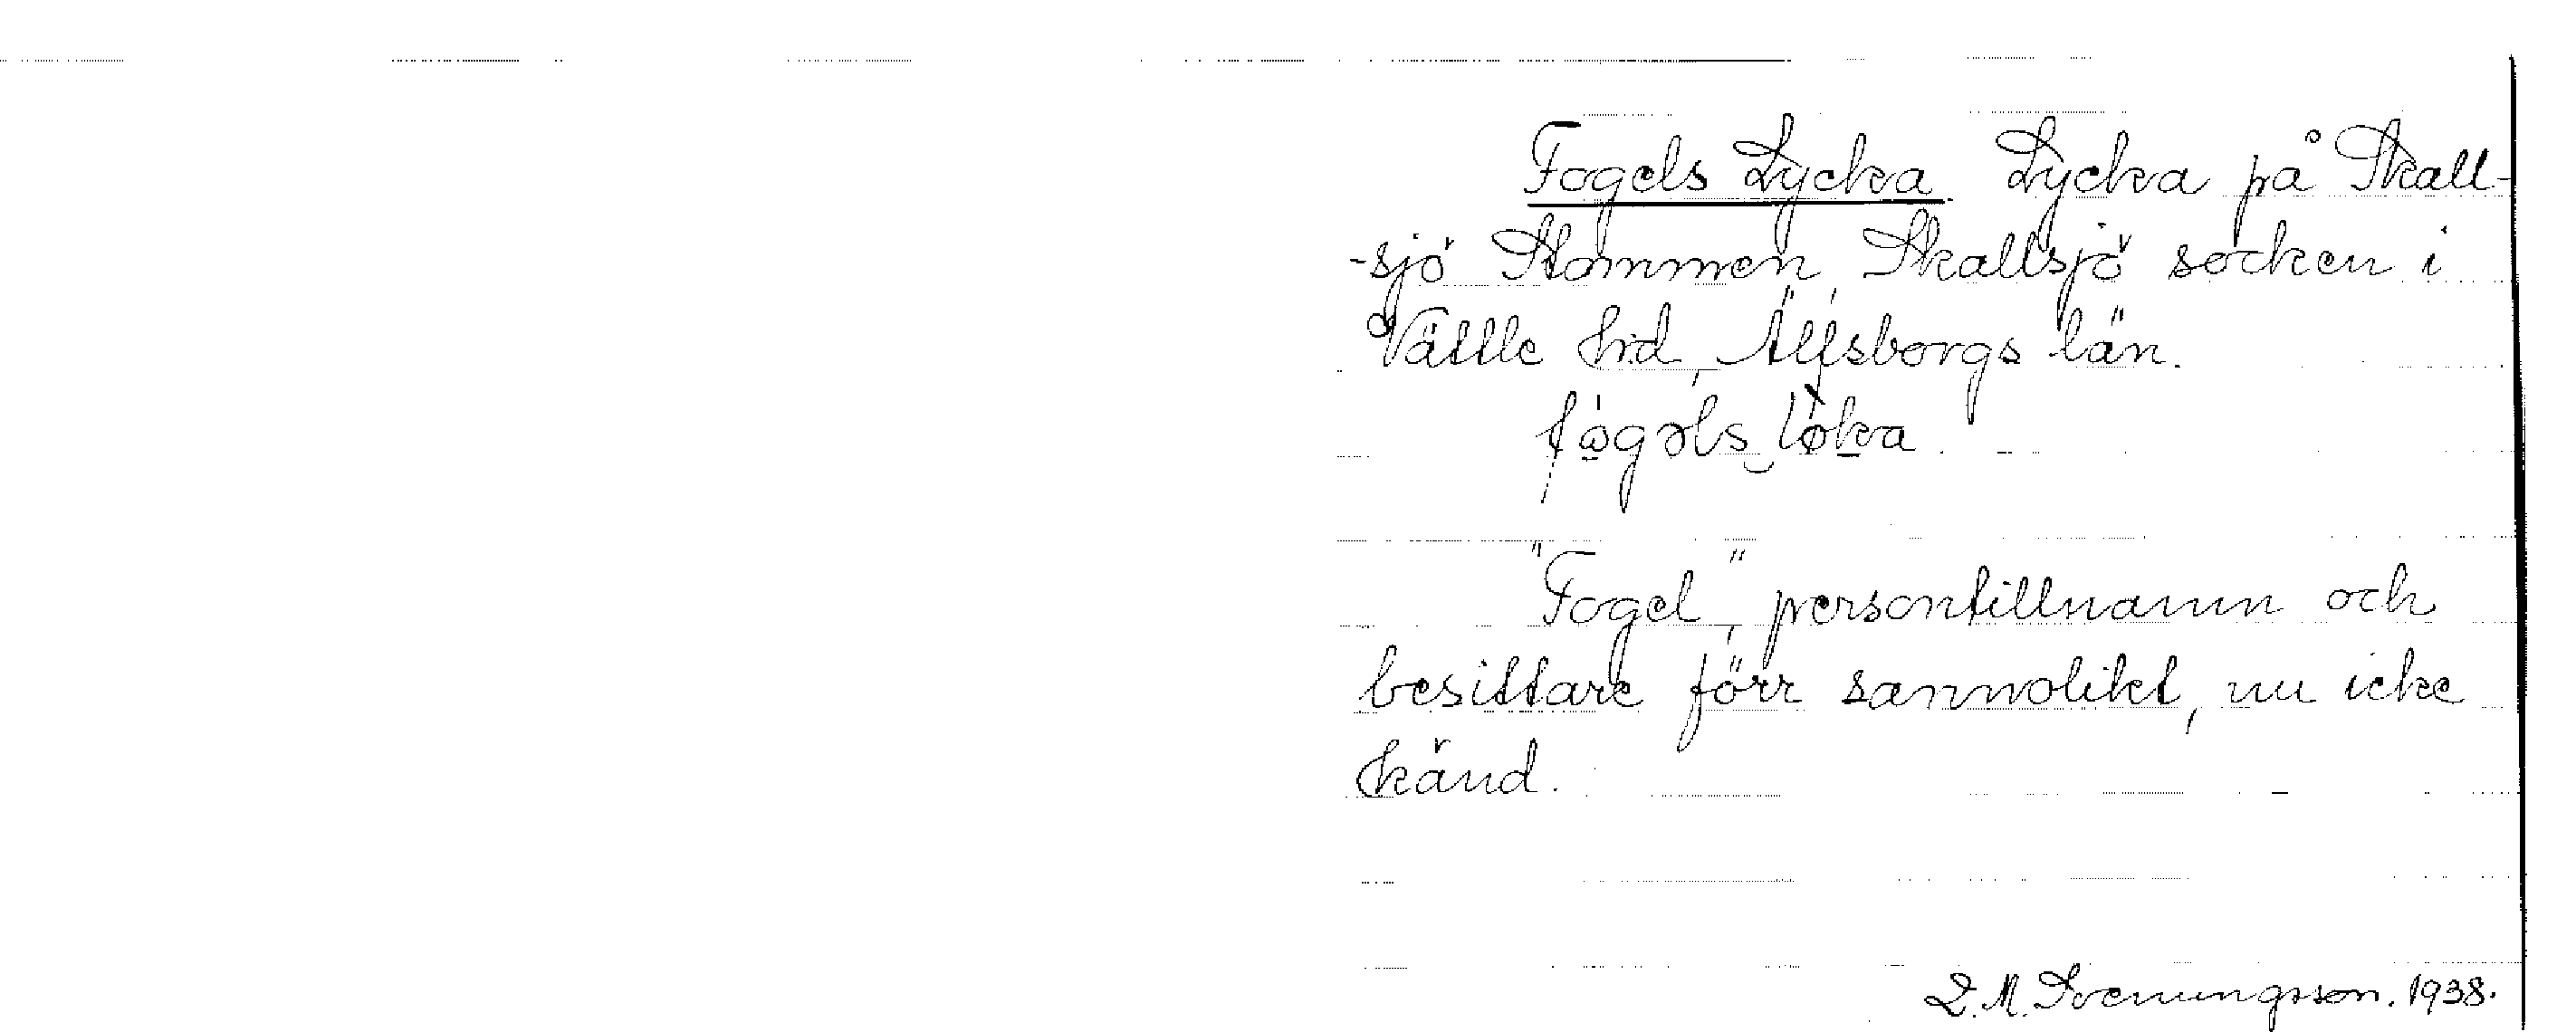 Fogels Lycka Lycka på Skall-
-sjö Stommen, Skallsjö socken i
Vättle hd, Älfsborgs län.
fògəls lø̀ka.
"Fogel", persontillnamn och
besittare förr sannolikt, nu icke
känd.
D. M. Svenungsson. 1938.